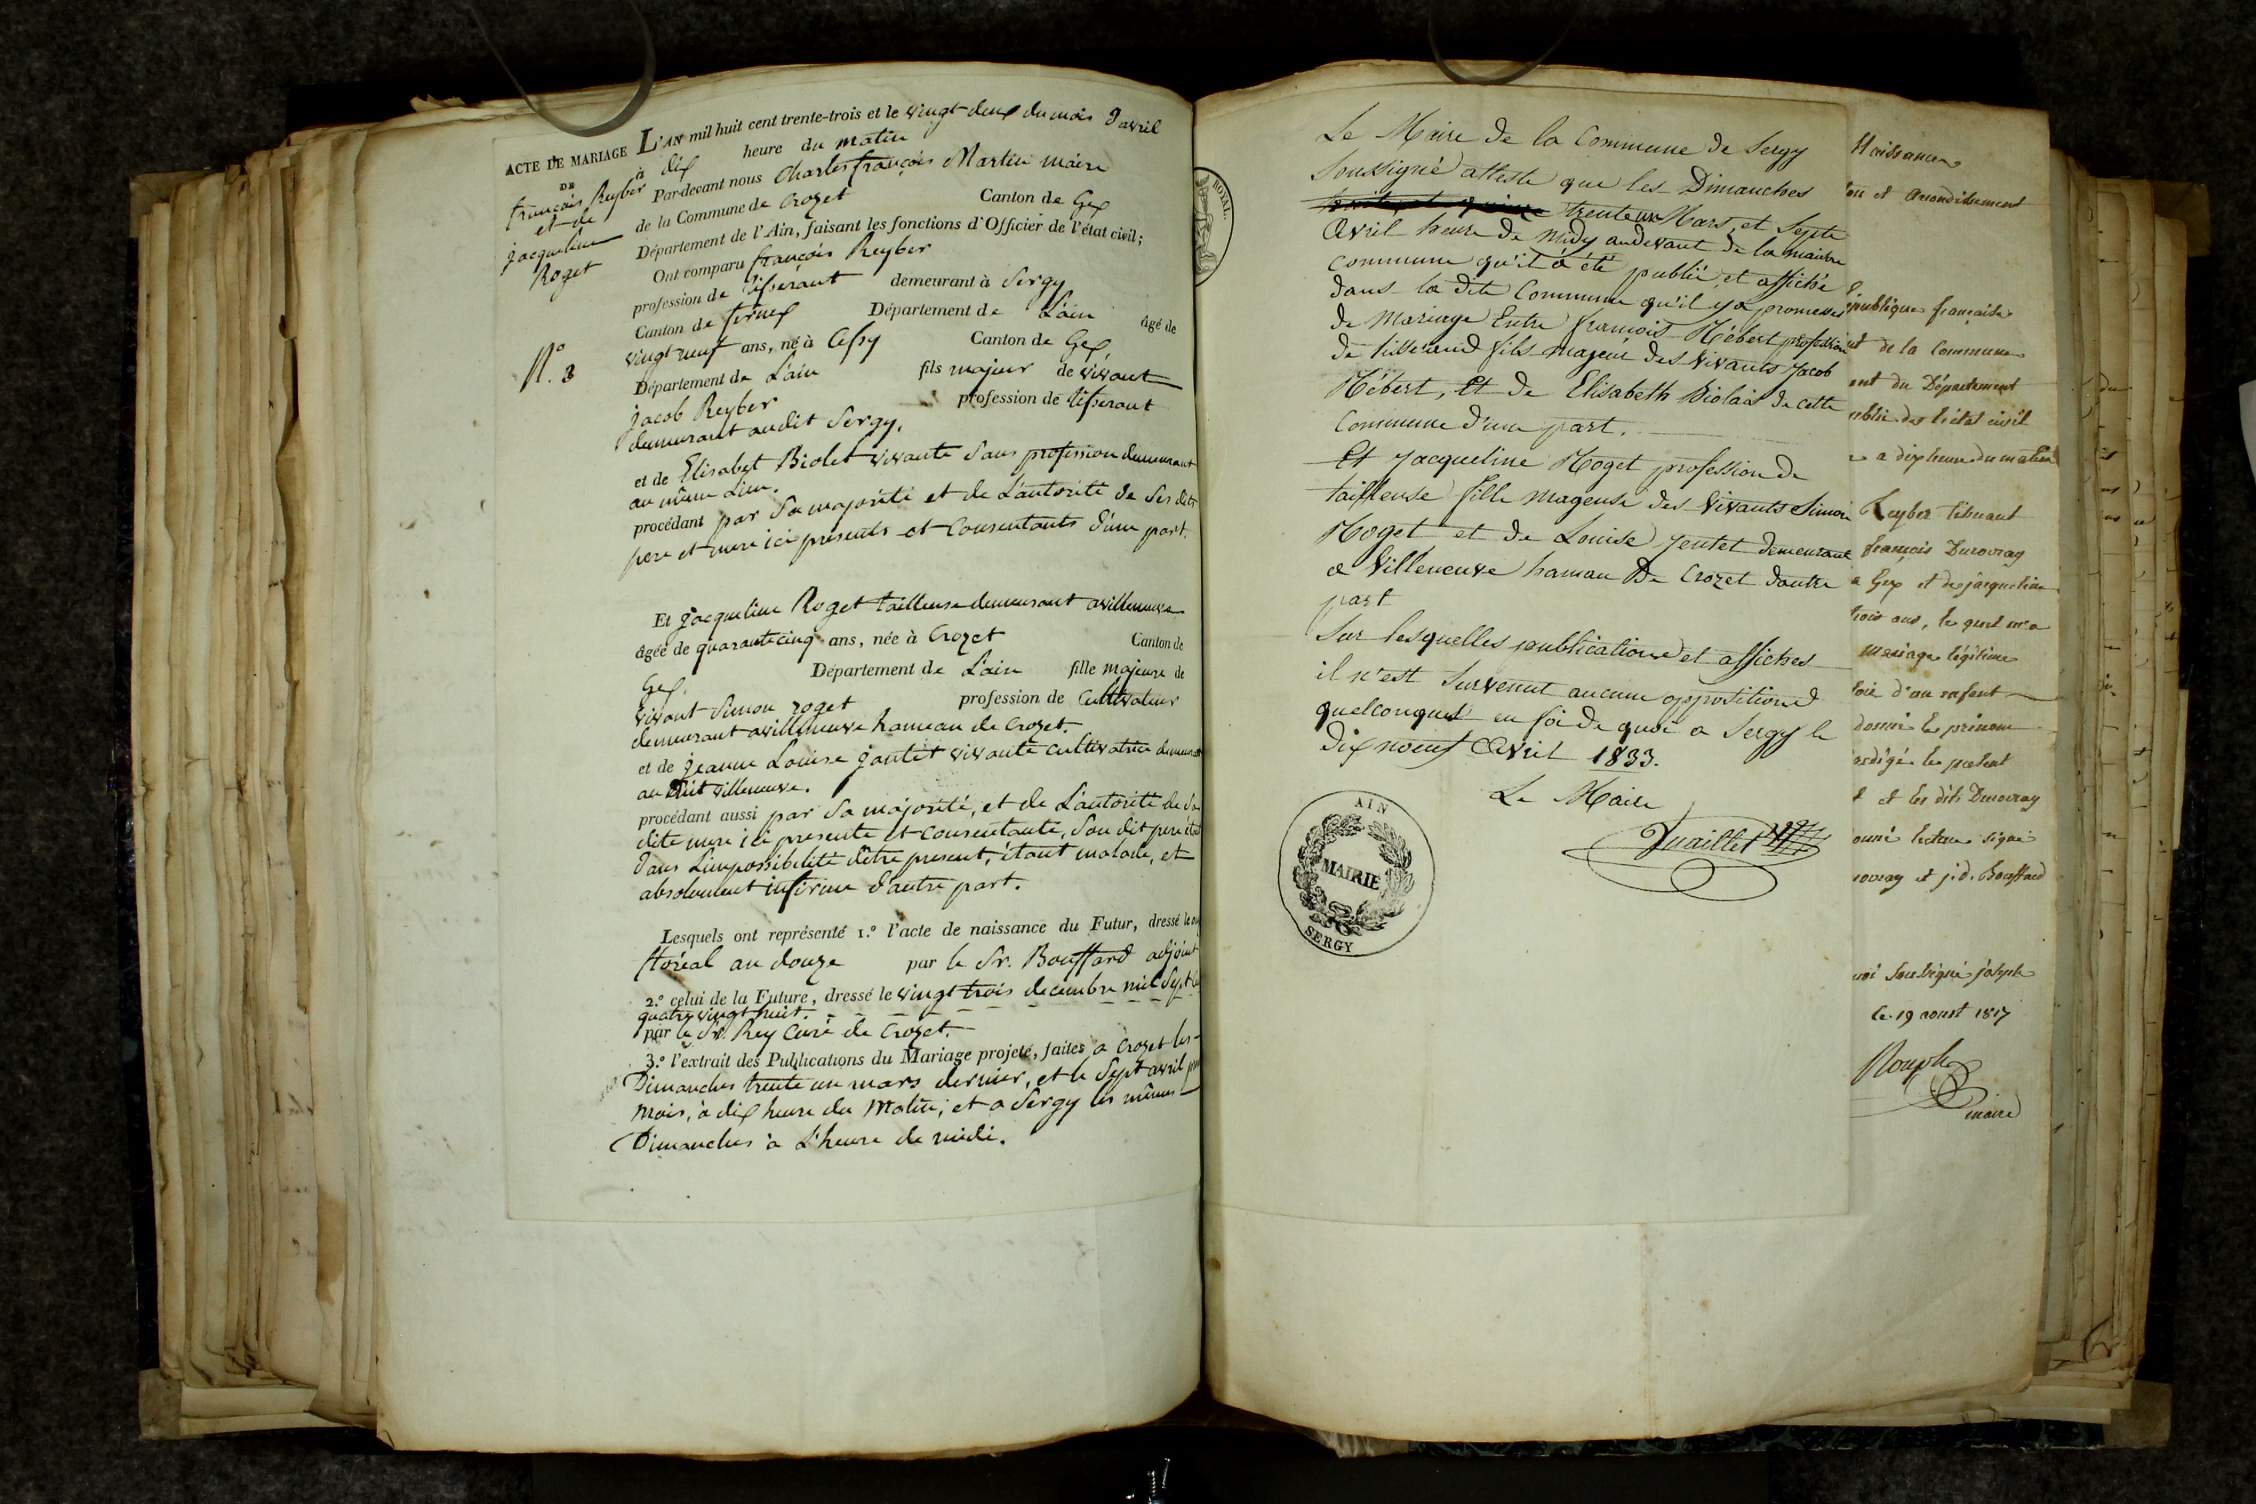 ACTE DE MARIAGE
DE
françois Reyber
et de
jacqueline
Roget
N.° 8
L'AN mil huit cent trente-trois et le vingt-deux du mois d'avril
à dix heure du matin
Par-devant nous Charles françois Martin maire
de la Commune de Crozet Canton de Gex
Département de l'Ain, faisant les fonctions d'Officier de l'état civil;
Ont comparu françois Reyber
profession de tisserant demeurant à Sergy
Canton de fernex Département de L'ain âgé de
vingt neuf ans, né à Cessy Canton de Gex
Département de L'ain fils majeur de vivant
jacob Reyber profession de tisserant
demeurant audit Sergy.
et de Elisabet Biolet vivante sans profession demeurant
au même Lieu.
procédant par sa majorité et de L'autorité de ses dits
pere et mere ici présents et consentants d'une part.
Et jacqueline Roget tailleuse demeurant a villeneuve
âgée de quarante cinq ans, née à Crozet Canton de
Gex. Département de L'ain fille majeure de
vivant Simon roget profession de Cultivateur
demeurant a villeneuve hameau de Crozet.
et de jeanne Louise jantet vivante cultivatrice demeurant
au dit villeneuve.
procédant aussi par sa majorité, et de L'autorité de sa
dite mere ici presente et consentante, son dit pere étant
dans L'impossibilité d'être present, étant malade, et
absolument infirme d'autre part.
Lesquels ont représenté 1.° l'acte de naissance du Futur, dressé le
floréal an douze par le Sr. Bouffard adjoint
2.° celui de la Future, dressé le vingt trois decembre mil sept
quatre vingt huit.
par le Sr. Rey Curé de Crozet.
3.° l'extrait des Publications du Mariage projeté, faites a Crozet les
Dimanches trente un mars dernier, et le Sept avril
mois, à dix heure du Matin; et a Sergy les mêmes
Dimanches à L'heure de midi.
ROYAL.
Le Maire de la Commune de Sergy
Soussigné atteste que les Dimanches
trente un Mars, et Septe
Avril heure de Midy audevant de la mairie
commune qu'il a été publié et affiché
dans la dite Commune qu'il y a promesses
de Mariage Entre françois Rébert profession
de tisserand fils mageur des vivants Jacob
Rébert, Et de Elisabeth Biolai de cette
Commune d'une part.
Et Jacqueline Roget profession de
tailleuse fille mageuse des vivants Simon
Roget et de Louise Jentet demeurant
a Villeneuve hamau De Crozet dautre
part
Sur lesquelles publications et affiches
il n'est survenut aucune oppositions
quelconques en foi de quoi a Sergy le
Dix noeuf Avril 1833.
Le Maire
AIN
MAIRIE
SERGY
Naissance
et arrondissement
république française
de la Commune
du Département
de l'état civil
a dix heure du matin
Reyber tisserant
françois Durovray
a Gex et de jacqueline
trois ans, le quel m'a
mariage légitime
d'un enfent
donné le prénom
rédigé le présent
et les dits Durovray
lecture signé
et j.d. Bouffard
soussigné joseph
le 19 aoust 1817
maire